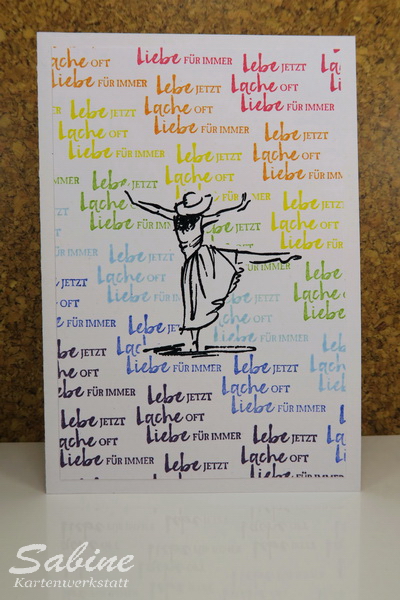 Lache OFT
Liebe FÜR IMMER
Liebe FÜR IMMER
Lebe JETZT
Lache OFT
Liebe FÜR IMMER
Lebe JETZT
Lache OFT
Liebe FÜR IMMER
Lebe JETZT
Lache OFT
Liebe FÜR IMMER
Lebe JETZT
Lache OFT
Liebe FÜR IMM
IMMER
Lebe JETZT
Lache
Liebe FÜR IMM
Lebe JETZT
Lache OFT
Liebe FÜR IMMER
FÜR IMMER
Lebe
Lache
Liebe
JETZT
OFT
FÜR IMMER
Lebe JETZT
Lache
Liebe FÜR IMMER
Lebe JETZT
Lache OFT
Liebe FÜR IMMER
Lebe JETZT
Lache OFT
Liebe FÜR IMMER
Lebe JETZT
Lache OFT
Liebe FÜR IMMER
Lebe JETZT
Lache OFT
Liebe FÜR IMMER
Lebe JETZT
Sabine
Kartenwerkstatt